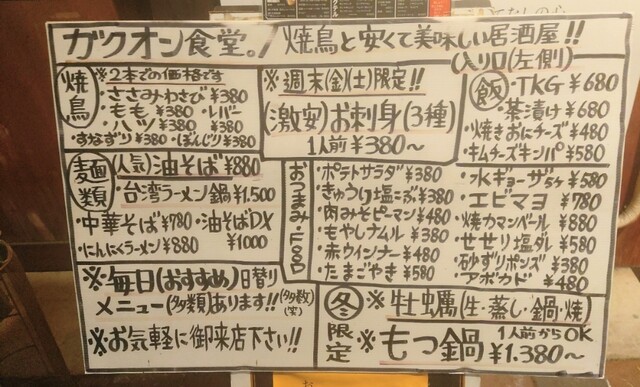 ガクオン食堂。! 焼鳥と安くて美味しい居酒屋!!
入り口(左側)
焼鳥
※2本での価格です
・ささみわさび ¥380
・もも ¥380 ・レバー
・ハツ ¥380 ¥380
・すなずり ¥380 ・ぼんじり ¥380
※週末(金)(土)限定!!
(激安)お刺身(3種)
1人前 ¥380〜
飯
・TKG ¥680
・茶漬け ¥680
・焼きおにチーズ ¥480
・キムチーズキンパ ¥580
麺類
(人気)油そば ¥880
・台湾ラーメン鍋 ¥1.500
・中華そば ¥780 ・油そばDX
・にんにくラーメン ¥880 ¥1000
おつまみ・FOOD
・ポテトサラダ ¥380
・きゅうり塩こぶ ¥380
・肉みそピーマン ¥480
・もやしナムル ¥380
・赤ウインナー ¥480
・たまごやき ¥580
・水ギョーザ ¥580
・エビマヨ ¥780
・焼カマンベール ¥880
・せせり塩ダレ ¥580
・砂ずりポンズ ¥380
・アボカド ¥480
※毎日(おすすめ)日替り
メニュー(多類)あります!!(多数)(笑)
※お気軽に御来店下さい!!
冬限定
※牡蠣(生・蒸し・鍋・焼)
※もつ鍋 1人前からOK ¥1.380〜